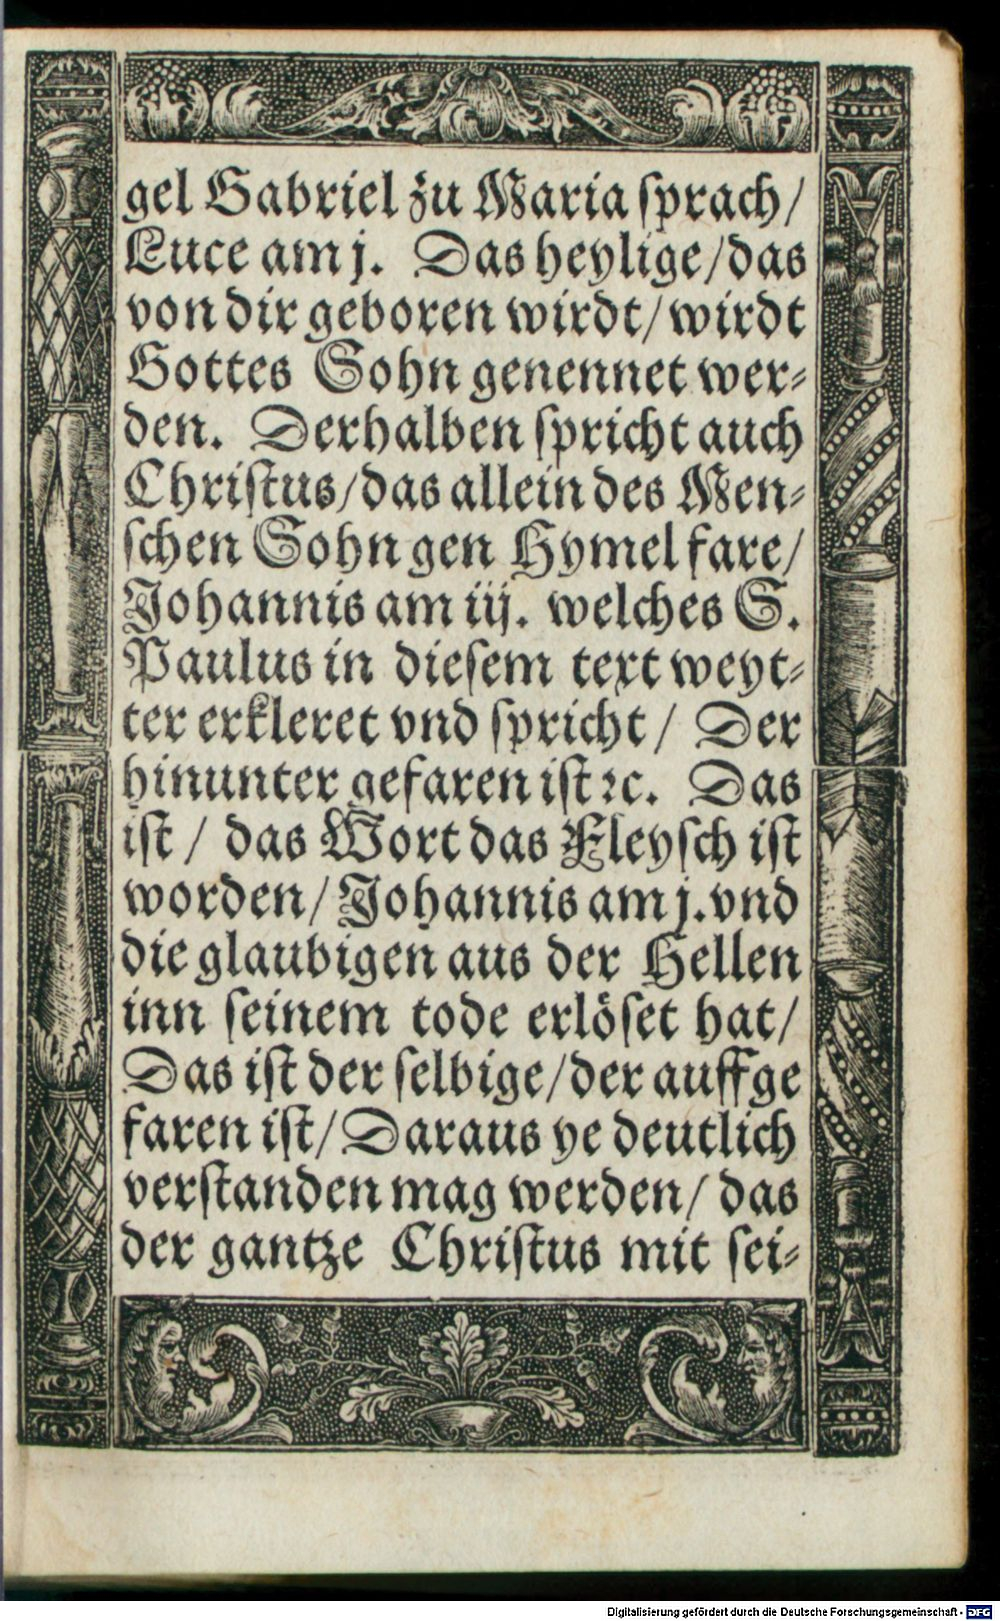 gel Gabriel zu Maria ſprach/
Luce am j. Das heylige/das
von dir geboren wirdt/wirdt
Gottes Sohn genennet wer⸗
den. Derhalben ſpricht auch
Chriſtus/das allein des Men⸗
ſchen Sohn gen Hymel fare/
Johannis am iij. welches S.
Paulus in dieſem text weyt⸗
ter erkleret vnd ſpricht/ Der
hinunter gefaren iſt ꝛc. Das
iſt / das Wort das Fleyſch iſt
worden/Johannis am j. vnd
die glaubigen aus der Hellen
inn ſeinem tode erlöſet hat/
Das iſt der ſelbige/der auffge
faren iſt/Daraus ye deutlich
verſtanden mag werden/ das
der gantze Chriſtus mit ſei⸗
Digitalisierung gefördert durch die Deutsche Forschungsgemeinschaft - DFG